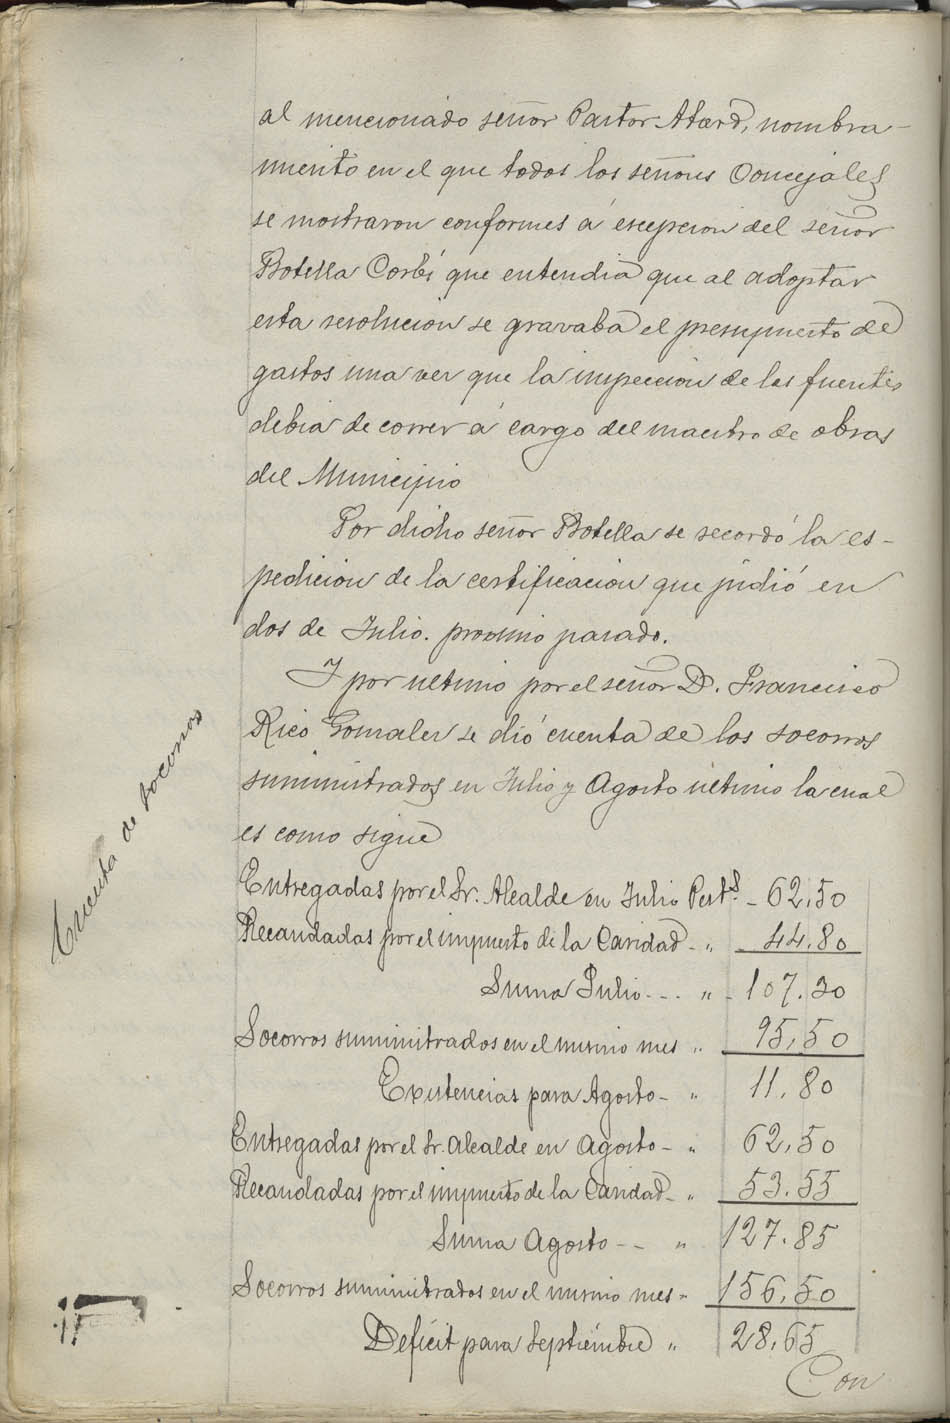 al mencionado señor Pastor Atard, nombra-
miento en el que todos los señores Concejales
se mostraron conformes á escepcion del señor
Botella Corbí que entendia que al adoptar
esta resolucion se gravaba el presupuesto de
gastos una vez que la inspeccion de las fuentes
debia de correr á cargo del maestro de obras
del Municipio
Por dicho señor Botella se recordó la es-
pedicion de la certificacion que pidió en
dos de Julio. procsimo pasado.
Y por ultimo por el señor D. Francisco
Rico Gonzalez se dió cuenta de los socorros
suministrados en Julio y Agosto ultimo la cual
es como sigue
Cuenta de socorros
Entregadas por el Sr. Alcalde en Julio Pest.s - 62,50
Recaudadas por el impuesto de la Caridad - " 44.80
Suma Julio - - - " - 107.30
Socorros suministrados en el mismo mes " 95,50
Existencias para Agosto - " 11.80
Entregadas por el Sr. Alcalde en Agosto - " 62,50
Recaudadas por el impuesto de la Caridad - " 53.55
Suma Agosto - - " 127.85
Socorros suministrados en el mismo mes " 156,50
Deficit para Septiembre " 28,65
Con